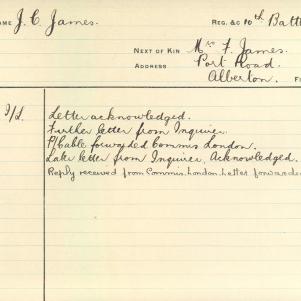 NAME J. C. James. REG. &C 10th Batt
NEXT OF KIN Mr F. James.
ADDRESS Port Road.
Alberton.
Letter acknowledged.
Further letter from Inquirer.
P/Cable forwarded Commis London.
Late letter from Inquirer, Acknowledged.
Reply received from Commis. London. Letter forwarded